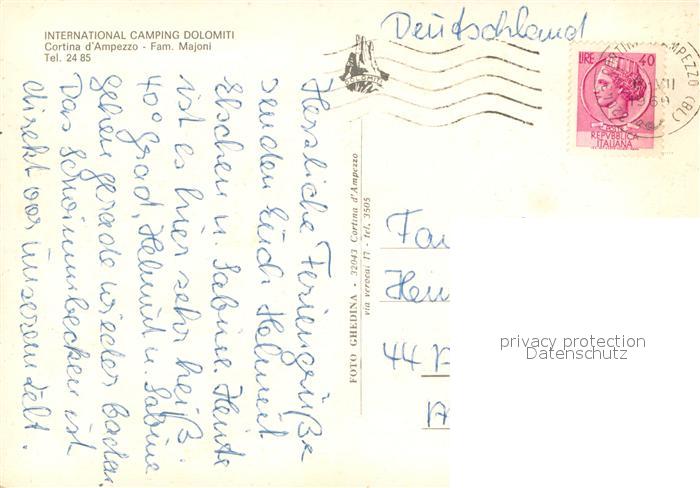 INTERNATIONAL CAMPING DOLOMITI
Cortina d'Ampezzo - Fam. Majoni
Tel. 24 85
Deutschland
DOLOMITI
LIRE 40
POSTE
REPVBBLICA
ITALIANA
Herzliche Feriengrüße
senden Euch Helmut
Elschen u. Sabine. Heute
ist es hier sehr heiß.
40° Grad, Helmut u. Sabine
gehen gerade wieder baden.
Das Schwimmbecken ist
direkt vor unserem Zelt.
FOTO GHEDINA - 32043 Cortina d'Ampezzo
via verocai 17 - tel. 3505
44
privacy protection
Datenschutz